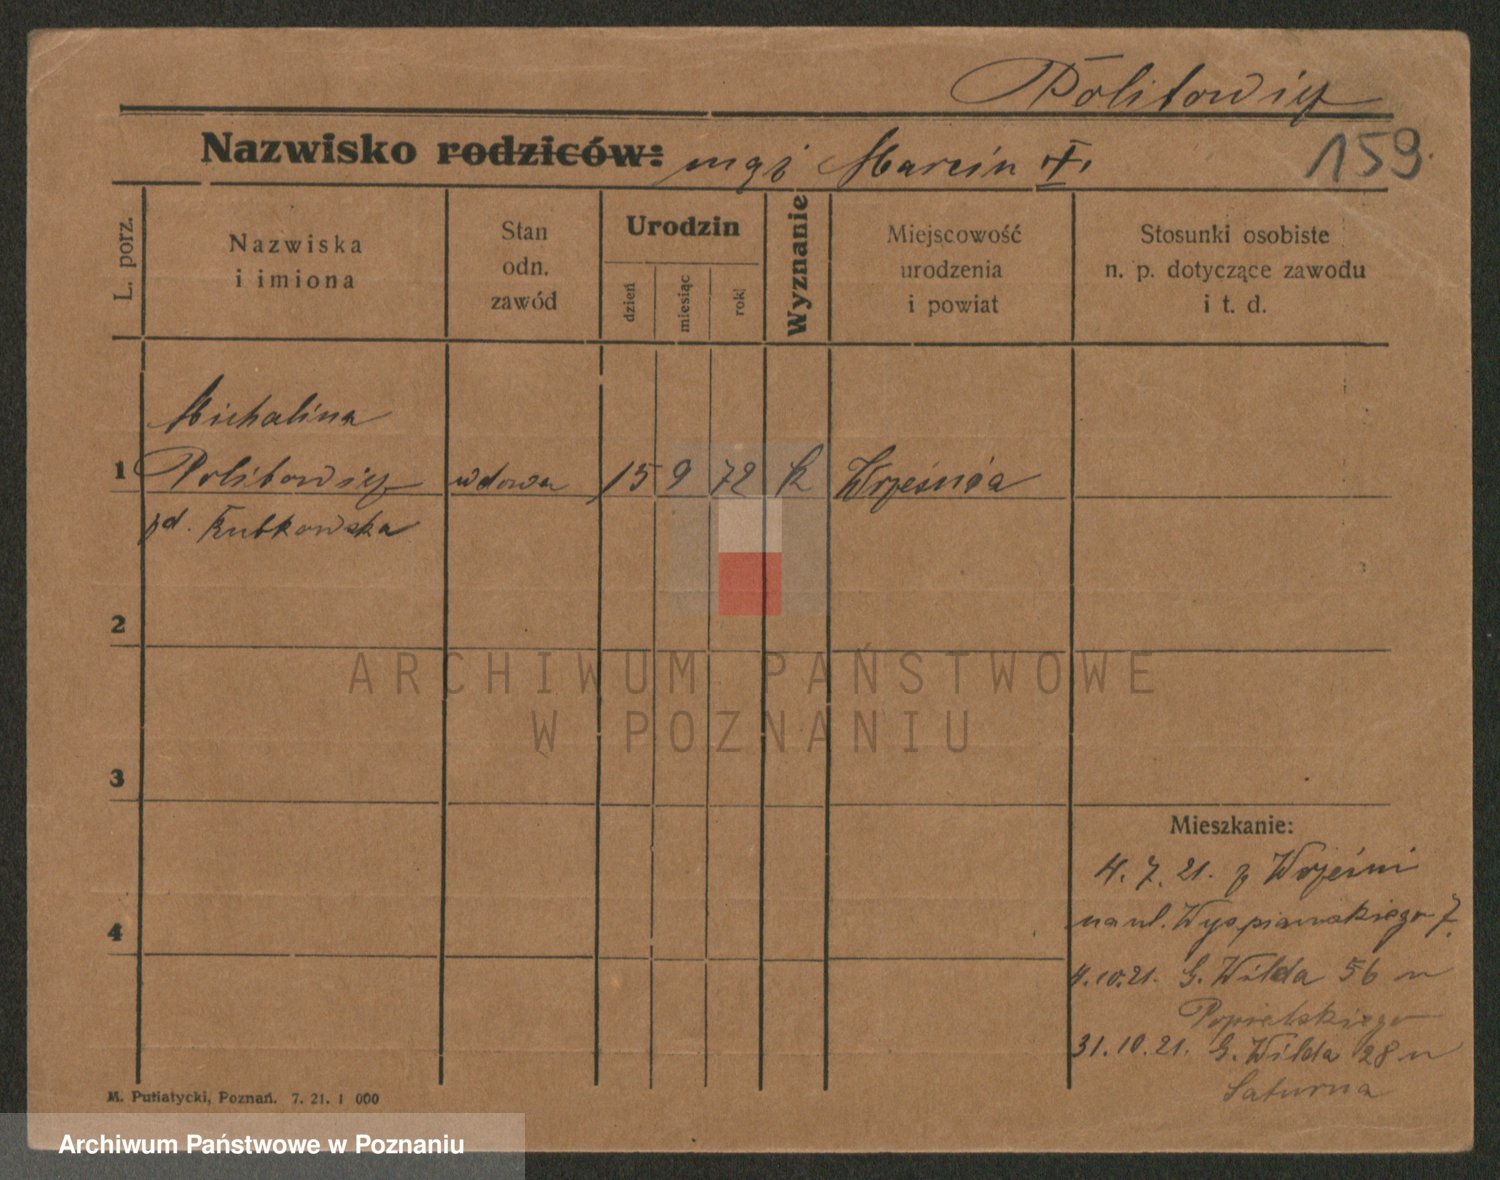 Politowicz
Nazwisko rodziców: mąż Marcin †.
159.
L. porz.
Nazwiska
i imiona
Stan
odn.
zawód
Urodzin
dzień
miesiąc
rok
Wyznanie
Miejscowość
urodzenia
i powiat
Stosunki osobiste
n. p. dotyczące zawodu
i t. d.
Michalina
1 Politowicz wdowa 15 9 72 k Września
2
3
4
Mieszkanie:
4. 7. 21. z Wrześni
na ul. Wyspiańskiego 7.
4.10.21. G. Wilda 56 u
Popielskiego
31.10.21. G. Wilda 28 u
Saturna
M. Putiatycki, Poznań. 7. 21. 1 000
ARCHIWUM PAŃSTWOWE
W POZNANIU
Archiwum Państwowe w Poznaniu